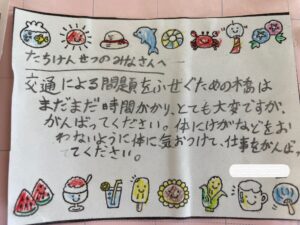 たちけんせつのみなさんへ
交通による問題をふせぐための橋は
まだまだ時間がかかり、とても大変ですが、
がんばってください。体にけがなどをお
わないように体に気おつけて、仕事をがんばっ
てください。